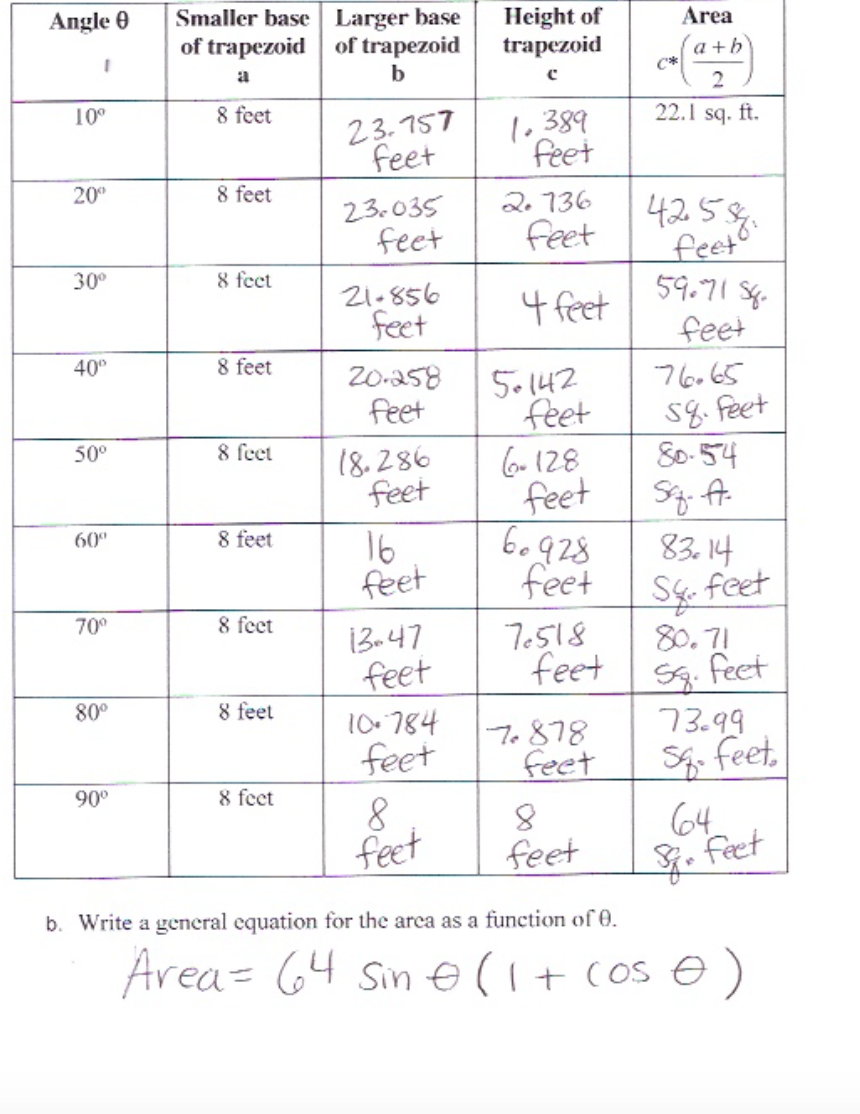 Angle θ
Smaller base
of trapezoid
a
Larger base
of trapezoid
b
Height of
trapezoid
c
Area
c*(a + b / 2)
10°
8 feet
23.757
feet
1.389
feet
22.1 sq. ft.
20°
8 feet
23.035
feet
2.736
feet
42.5 sq.
feet
30°
8 feet
21.856
feet
4 feet
59.71 sq.
feet
40°
8 feet
20.258
feet
5.142
feet
76.65
sq. feet
50°
8 feet
18.286
feet
6.128
feet
80.54
sq. ft.
60°
8 feet
16
feet
6.928
feet
83.14
sq. feet
70°
8 feet
13.47
feet
7.518
feet
80.71
sq. feet
80°
8 feet
10.784
feet
7.878
feet
73.99
sq. feet.
90°
8 feet
8
feet
8
feet
64
sq. feet
b. Write a general equation for the area as a function of θ.
Area = 64 sin θ (1 + cos θ)